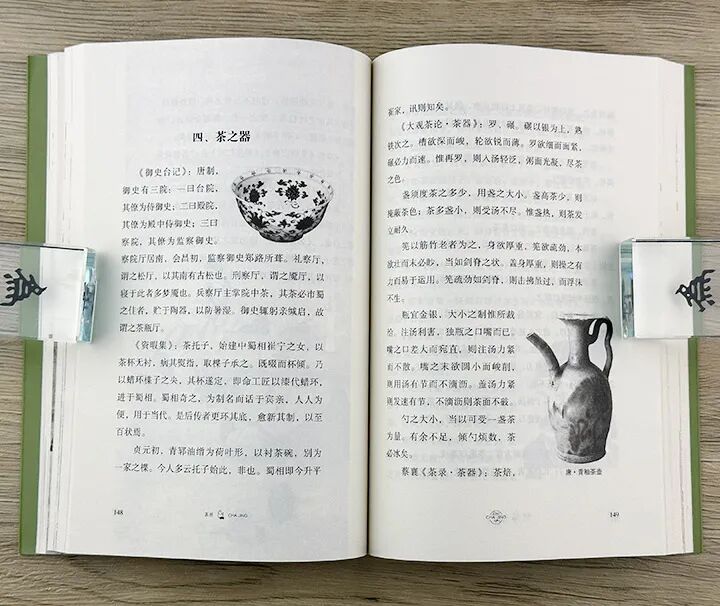 四、茶之器
《御史台记》：唐制，
御史有三院：一曰台院，
其僚为侍御史；二曰殿院，
其僚为殿中侍御史；三曰
察院，其僚为监察御史。
察院厅居南，会昌初，监察御史郑路所葺。礼察厅，
谓之松厅，以其南有古松也。刑察厅，谓之魇厅，以
寝于此者多梦魇也。兵察厅主掌院中茶，其茶必市蜀
之佳者，贮于陶器，以防暑湿。御史辄躬亲缄启，故
谓之茶瓶厅。
《资暇集》：茶托子，始建中蜀相崔宁之女，以
茶杯无衬，病其熨指，取楪子承之。既啜而杯倾。乃
以蜡环楪子之央，其杯遂定，即命工匠以漆代蜡环，
进于蜀相。蜀相奇之，为制名而话于宾亲，人人为
便，用于当代。是后传者更环其底，愈新其制，以至
百状焉。
贞元初，青郓油缯为荷叶形，以衬茶碗，别为
一家之楪。今人多云托子始此，非也。蜀相即今升平
148
茶经
CHA JING
崔家，讯则知矣。
《大观茶论·茶器》：罗、碾。碾以银为上，熟
铁次之。槽欲深而峻，轮欲锐而薄。罗欲细而面紧，
碾必力而速。惟再罗，则入汤轻泛，粥面光凝，尽茶
之色。
盏须度茶之多少，用盏之大小。盏高茶少，则
掩蔽茶色；茶多盏小，则受汤不尽。惟盏热，则茶发
立耐久。
筅以筋竹老者为之，身欲厚重，筅欲疏劲，本
欲壮而末必眇，当如剑脊之状。盖身厚重，则操之有
力而易于运用。筅疏劲如剑脊，则击拂虽过，而浮沫
不生。
瓶宜金银，大小之制惟所裁
给。注汤利害，独瓶之口嘴而已。
嘴之口差大而宛直，则注汤力紧
而不散。嘴之末欲圆小而峻削，
则用汤有节而不滴沥。盖汤力紧
则发速有节，不滴沥则茶面不破。
勺之大小，当以可受一盏茶
为量。有余不足，倾勺烦数，茶
必冰矣。
蔡襄《茶录·茶器》：茶焙，
唐·青釉茶壶
CHA JING
149